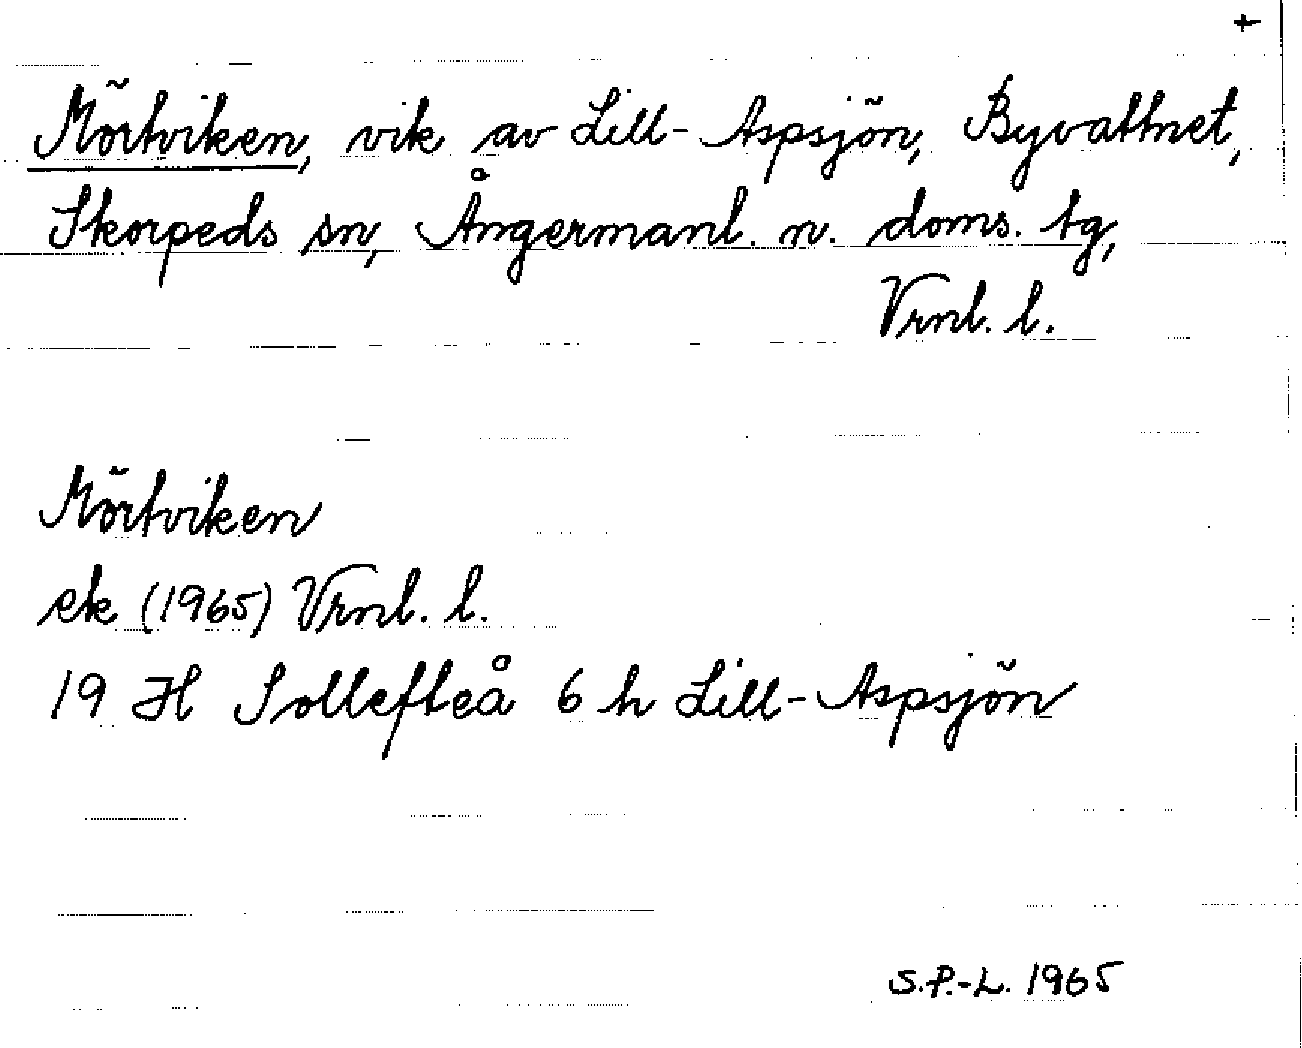 +
Mörtviken, vik av Lill-Aspsjön, Byvattnet,
Skorpeds sn, Ångermanl. n. doms. tg,
Vrnl. l.
Mörtviken
ek (1965) Vrnl. l.
19 H Sollefteå 6 h Lill-Aspsjön
S.P.-L. 1965